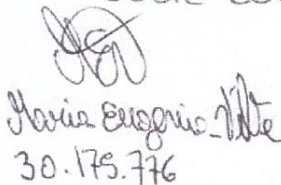 Maria Eugenia Vilte
30.175.776